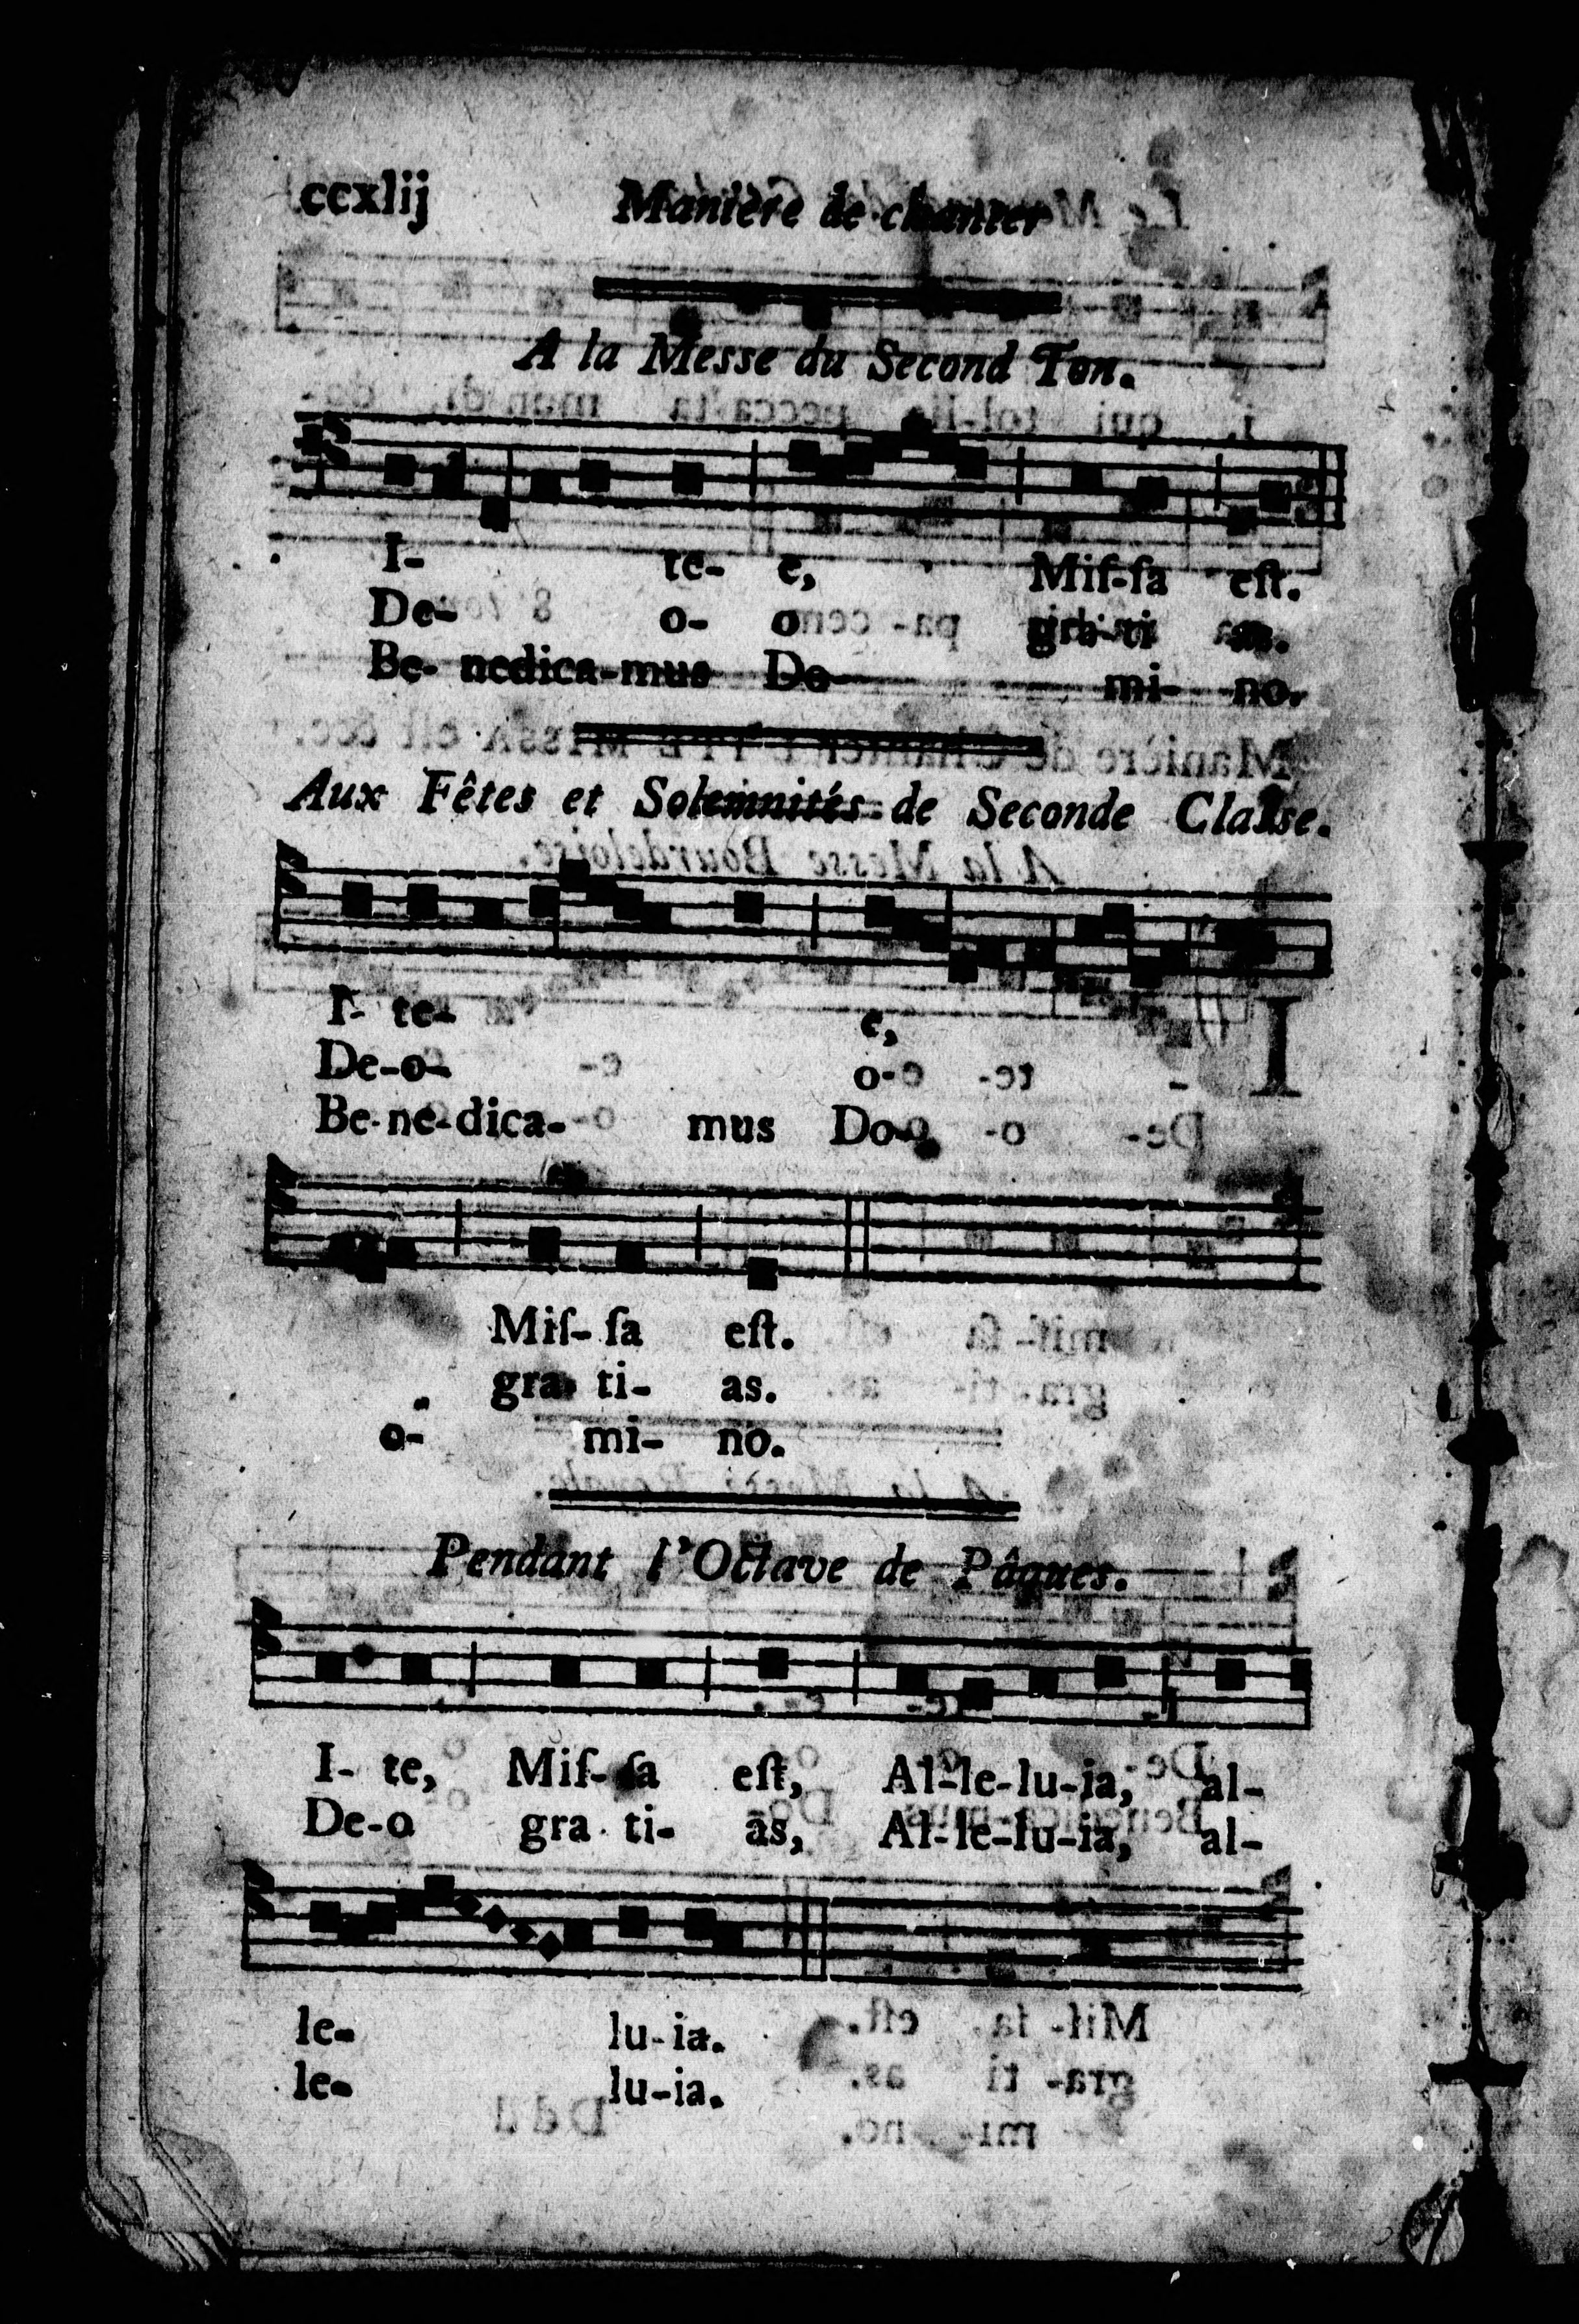 ccxlij Manière de chanter
A la Messe du Second Ton.
I- te- e, Miſ-ſa eſt.
De- o- o gra-ti as.
Be- nedica-mus Do mi- no.
Aux Fêtes et Solemnités de Seconde Classe.
I- te- e,
De-o- o-
Be-ne-dica- mus Do-
Miſ-ſa eſt.
gra ti- as.
o- mi- no.
Pendant l'Octave de Pâques.
I- te, Miſ-ſa eſt, Al-le-lu-ia, al-
De-o gra-ti- as, Al-le-lu-ia, al-
le- lu-ia.
le- lu-ia.